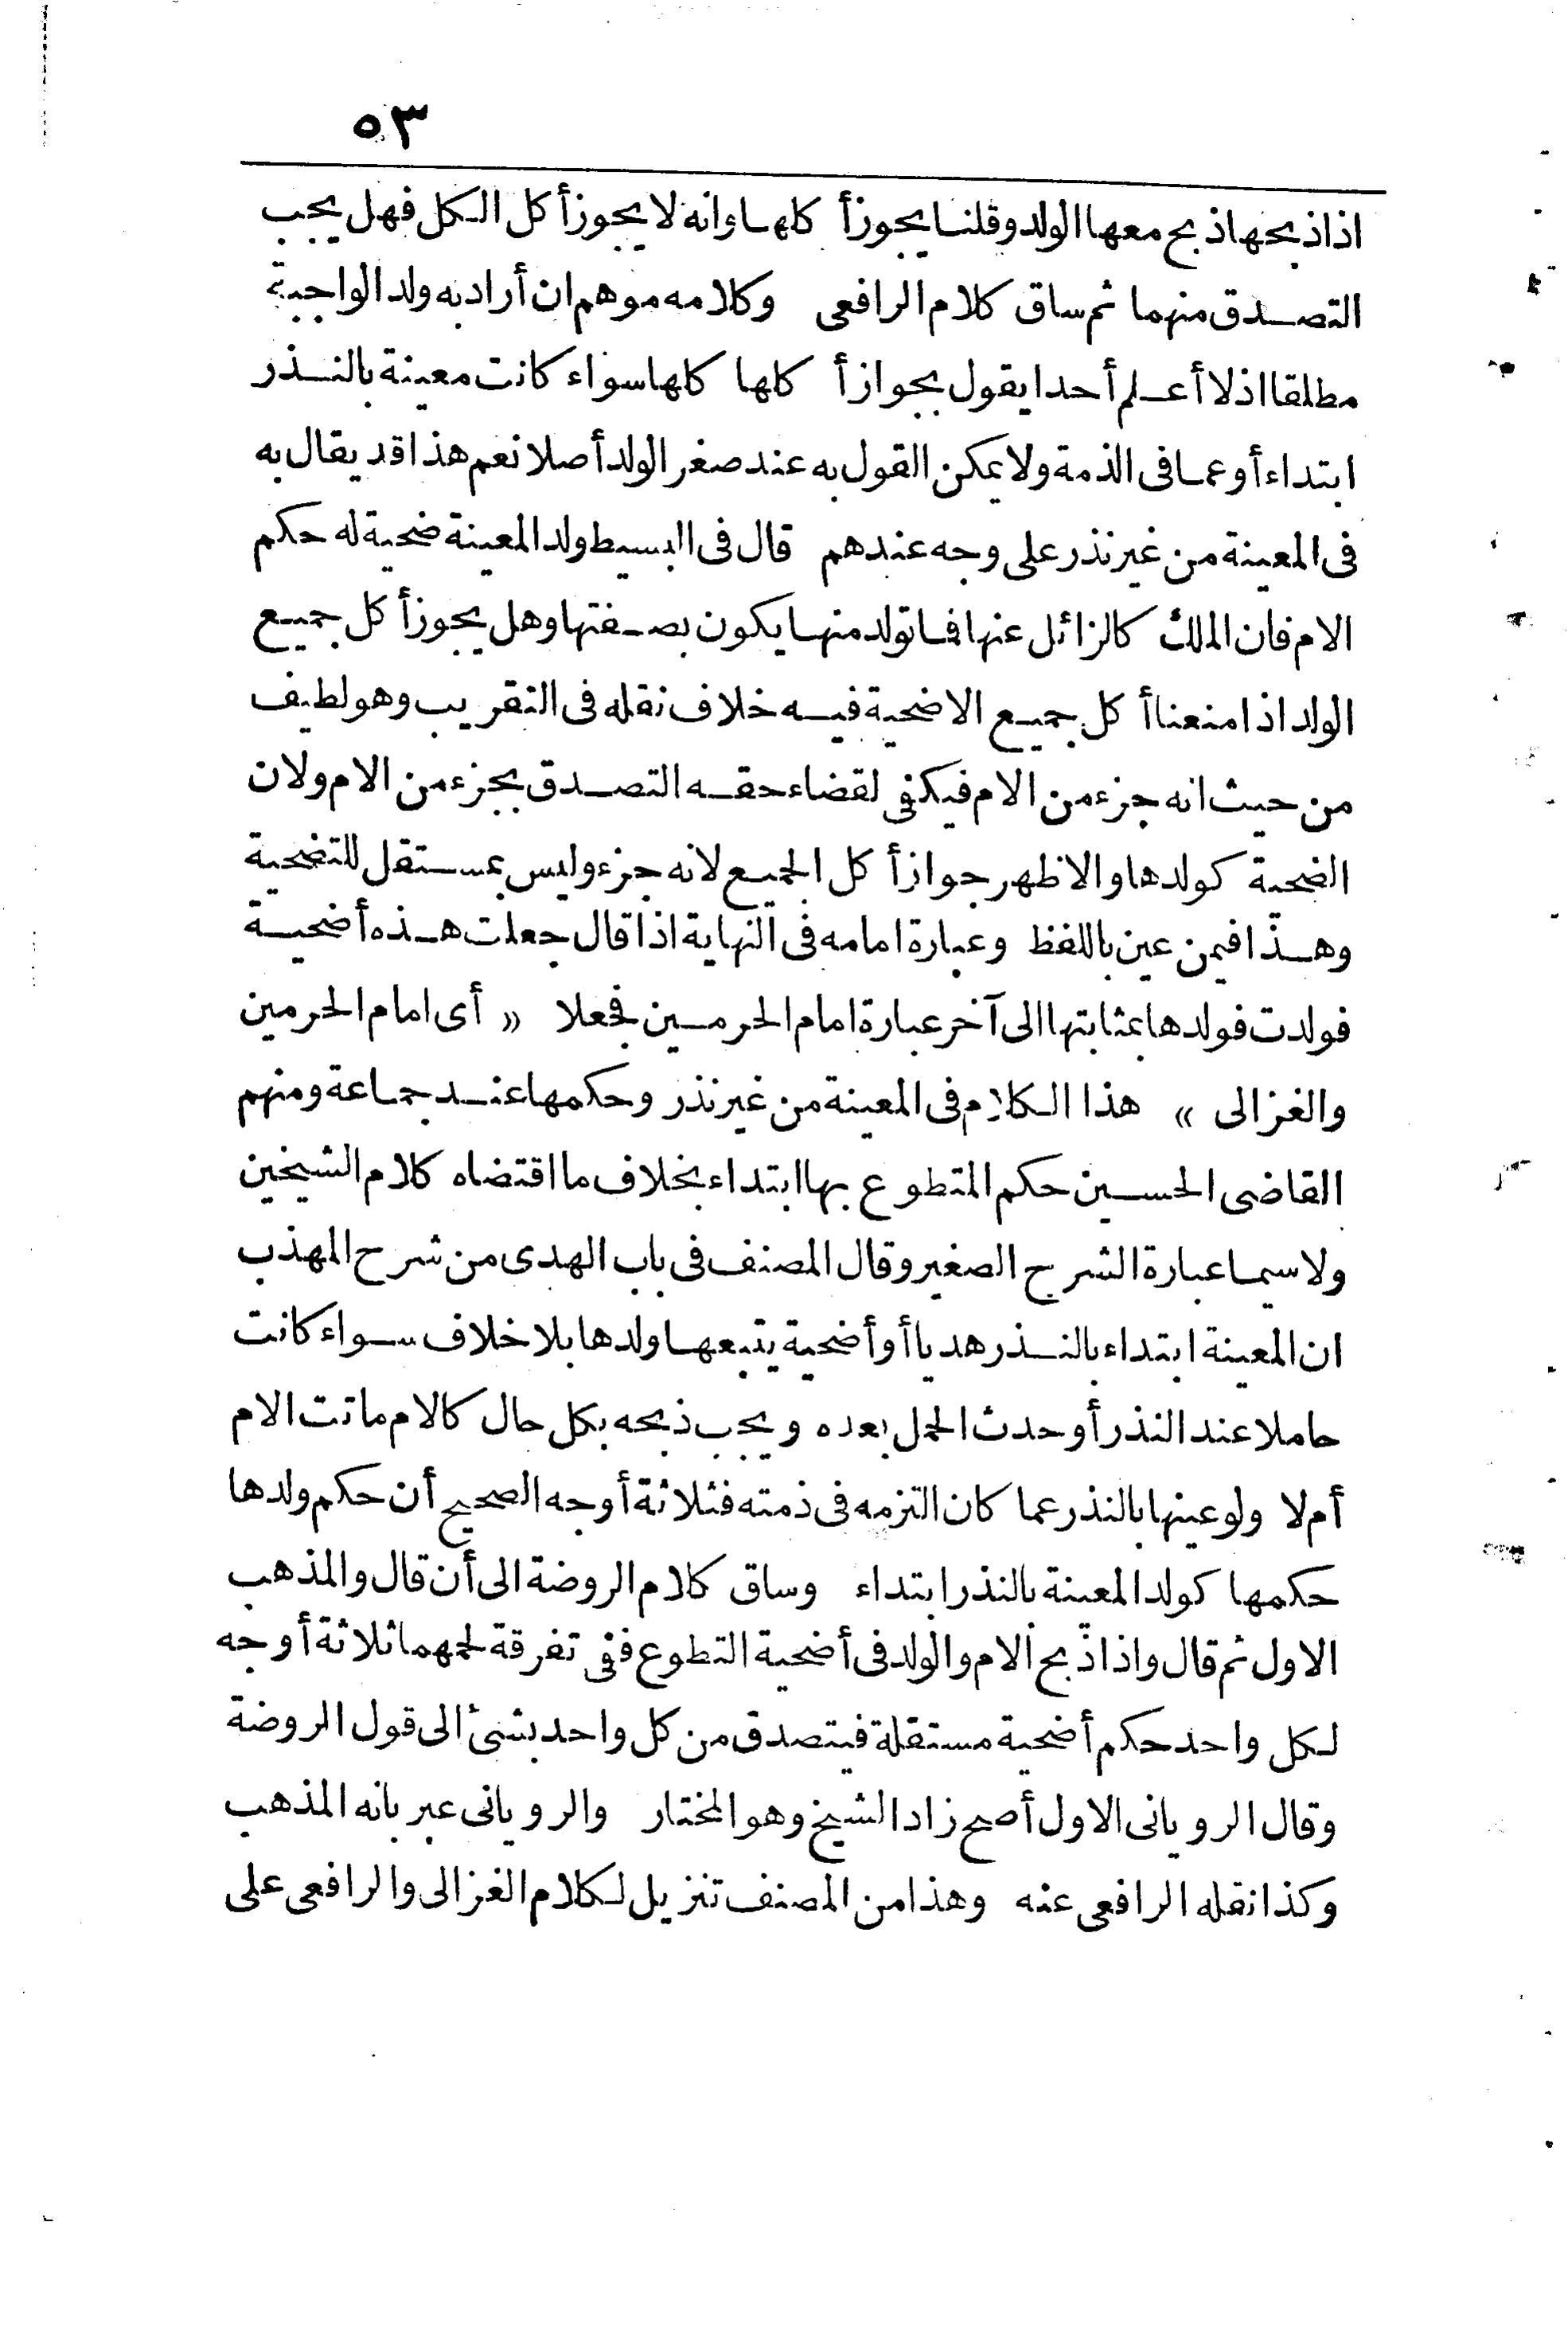 ٥٣
اذا ذبحها ذبح معها الولد وقلنا يجوز أكلها وانه لا يجوز أكل الكل فهل يجب
التصدق منهما ثم ساق كلام الرافعى وكلامه موهم ان أراد به ولد الواجبة
مطلقا اذ لا أعلم أحدا يقول بجواز أكلها كلها سواء كانت معينة بالنذر
ابتداء أو عما فى الذمة ولا يمكن القول به عند صغر الولد أصلا نعم هذا قد يقال به
فى المعينة من غير نذر على وجه عندهم قال فى البسيط ولد المعينة ضحية له حكم
الام فان الملك كالزائل عنها فما تولد منها يكون بصفتها وهل يجوز أكل جميع
الولد اذا منعنا أكل جميع الاضحية فيه خلاف نقله فى التقريب وهو لطيف
من حيث انه جزء من الام فيكفى لقضاء حقه التصدق بجزء من الام ولان
الضحية كولدها والاظهر جواز أكل الجميع لانه جزء وليس بمستقل للتضحية
وهذا فيمن عين باللفظ وعبارة امامه فى النهاية اذا قال جعلت هذه أضحية
فولدت فولدها بمثابتها الى آخر عبارة امام الحرمين فجعلا « أى امام الحرمين
والغزالى » هذا الكلام فى المعينة من غير نذر وحكمها عند جماعة ومنهم
القاضى الحسين حكم المتطوع بها ابتداء بخلاف ما اقتضاه كلام الشيخين
ولا سيما عبارة الشرح الصغير وقال المصنف فى باب الهدى من شرح المهذب
ان المعينة ابتداء بالنذر هديا أو أضحية يتبعها ولدها بلا خلاف سواء كانت
حاملا عند النذر أو حدث الحمل بعده ويجب ذبحه بكل حال كالام ماتت الام
أم لا ولو عينها بالنذر عما كان التزمه فى ذمته فثلاثة أوجه الصحيح أن حكم ولدها
حكمها كولد المعينة بالنذر ابتداء وساق كلام الروضة الى أن قال والمذهب
الاول ثم قال واذا ذبح الام والولد فى أضحية التطوع ففى تفرقة لحمهما ثلاثة أوجه
لكل واحد حكم أضحية مستقلة فيتصدق من كل واحد بشئ الى قول الروضة
وقال الرويانى الاول أصح زاد الشيخ وهو المختار والرويانى عبر بانه المذهب
وكذا نقله الرافعى عنه وهذا من المصنف تنزيل لكلام الغزالى والرافعى على